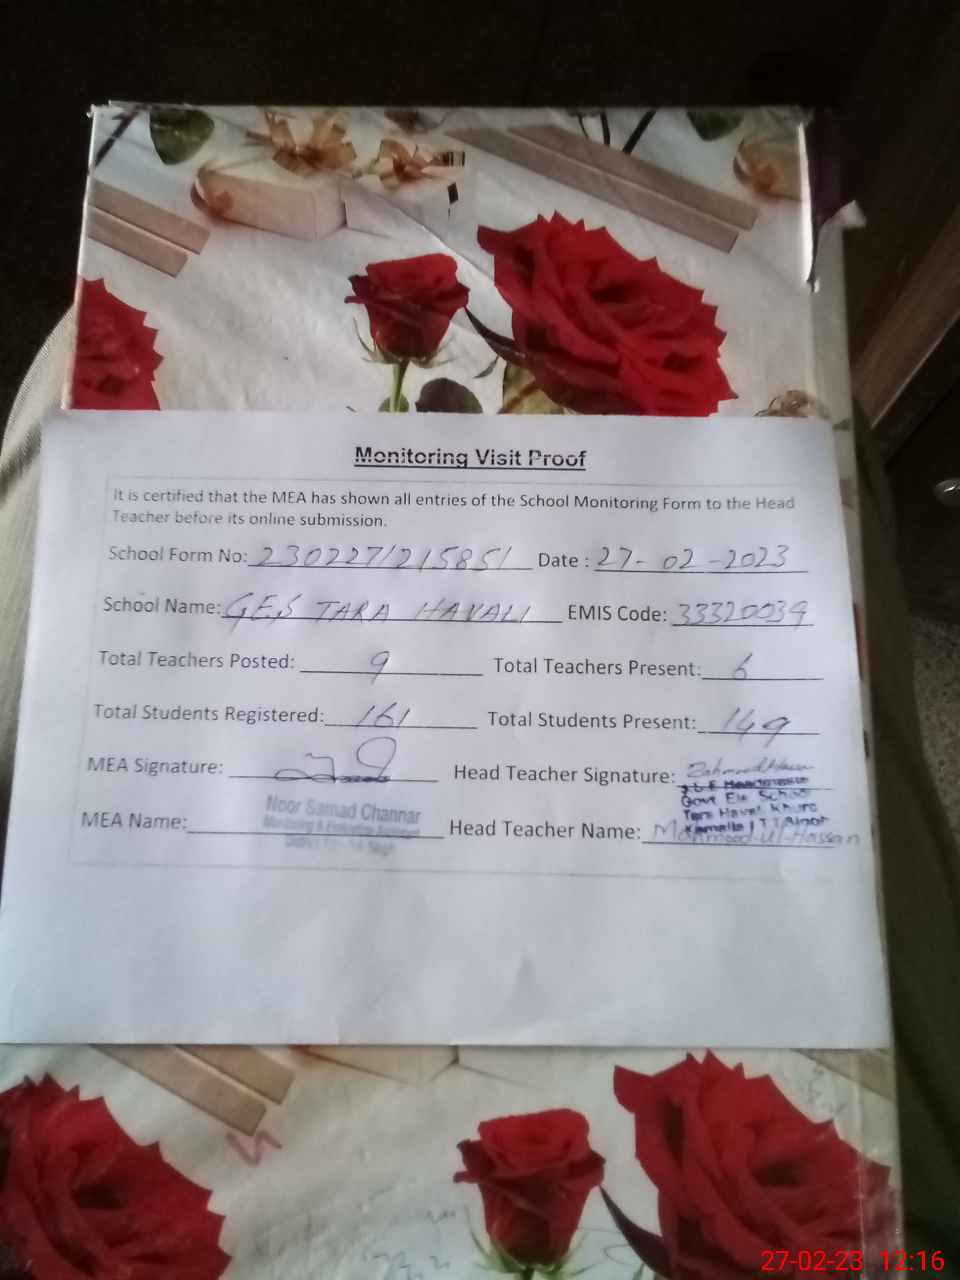 Monitoring Visit Proof
It is certified that the MEA has shown all entries of the School Monitoring Form to the Head
Teacher before its online submission.
School Form No: 230227/215851 Date : 27-02-2023
School Name: GES TARA HAVALI EMIS Code: 33320039
Total Teachers Posted: 9 Total Teachers Present: 6
Total Students Registered: 161 Total Students Present: 149
MEA Signature: Head Teacher Signature:
Headmaster
Govt Ele School
Tara Haveli Khurd
Kamalia
MEA Name: Noor Samad Channar
Monitoring & Evaluation Assistant
Head Teacher Name: Mahmood-ul-Hassan
27-02-23 12:16